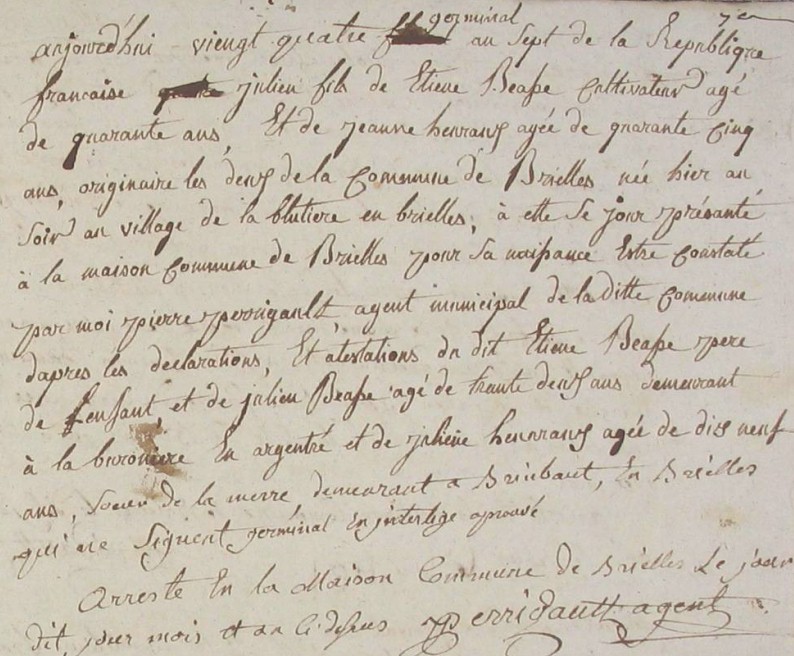 germinal
anjourd'hui viengt quatre au sept de la Republique
francaise julien fils de Etiene Beasse Cultivateur agé
de quarante ans, Et de jeanne henraux agée de quarante cinq
ans, originaire les deux de la Commune de Brielles née hier au
soir au village de la blutiere en brielles, à ette se jour présanté
à la maison Commune de Brielles pour sa naissance Estre constaté
par moi pierre perrigault agent municipal de la ditte Commune
dapres les declarations, Et atestations du dit Etiene Beasse pere
de Lenfant, et de julien Beasse agé de trante deux ans demeurant
à la buroniere En argentré et de juliene henraux agée de dix neuf
ans, soeur de la merre, demeurant a Briebaut, En Brielles
qui ne signent germinal En interlige aprouvé
Arresté En la Maison Commune de Brielles Le jour
dit, jour mois et an ci dessus pperrigault agent